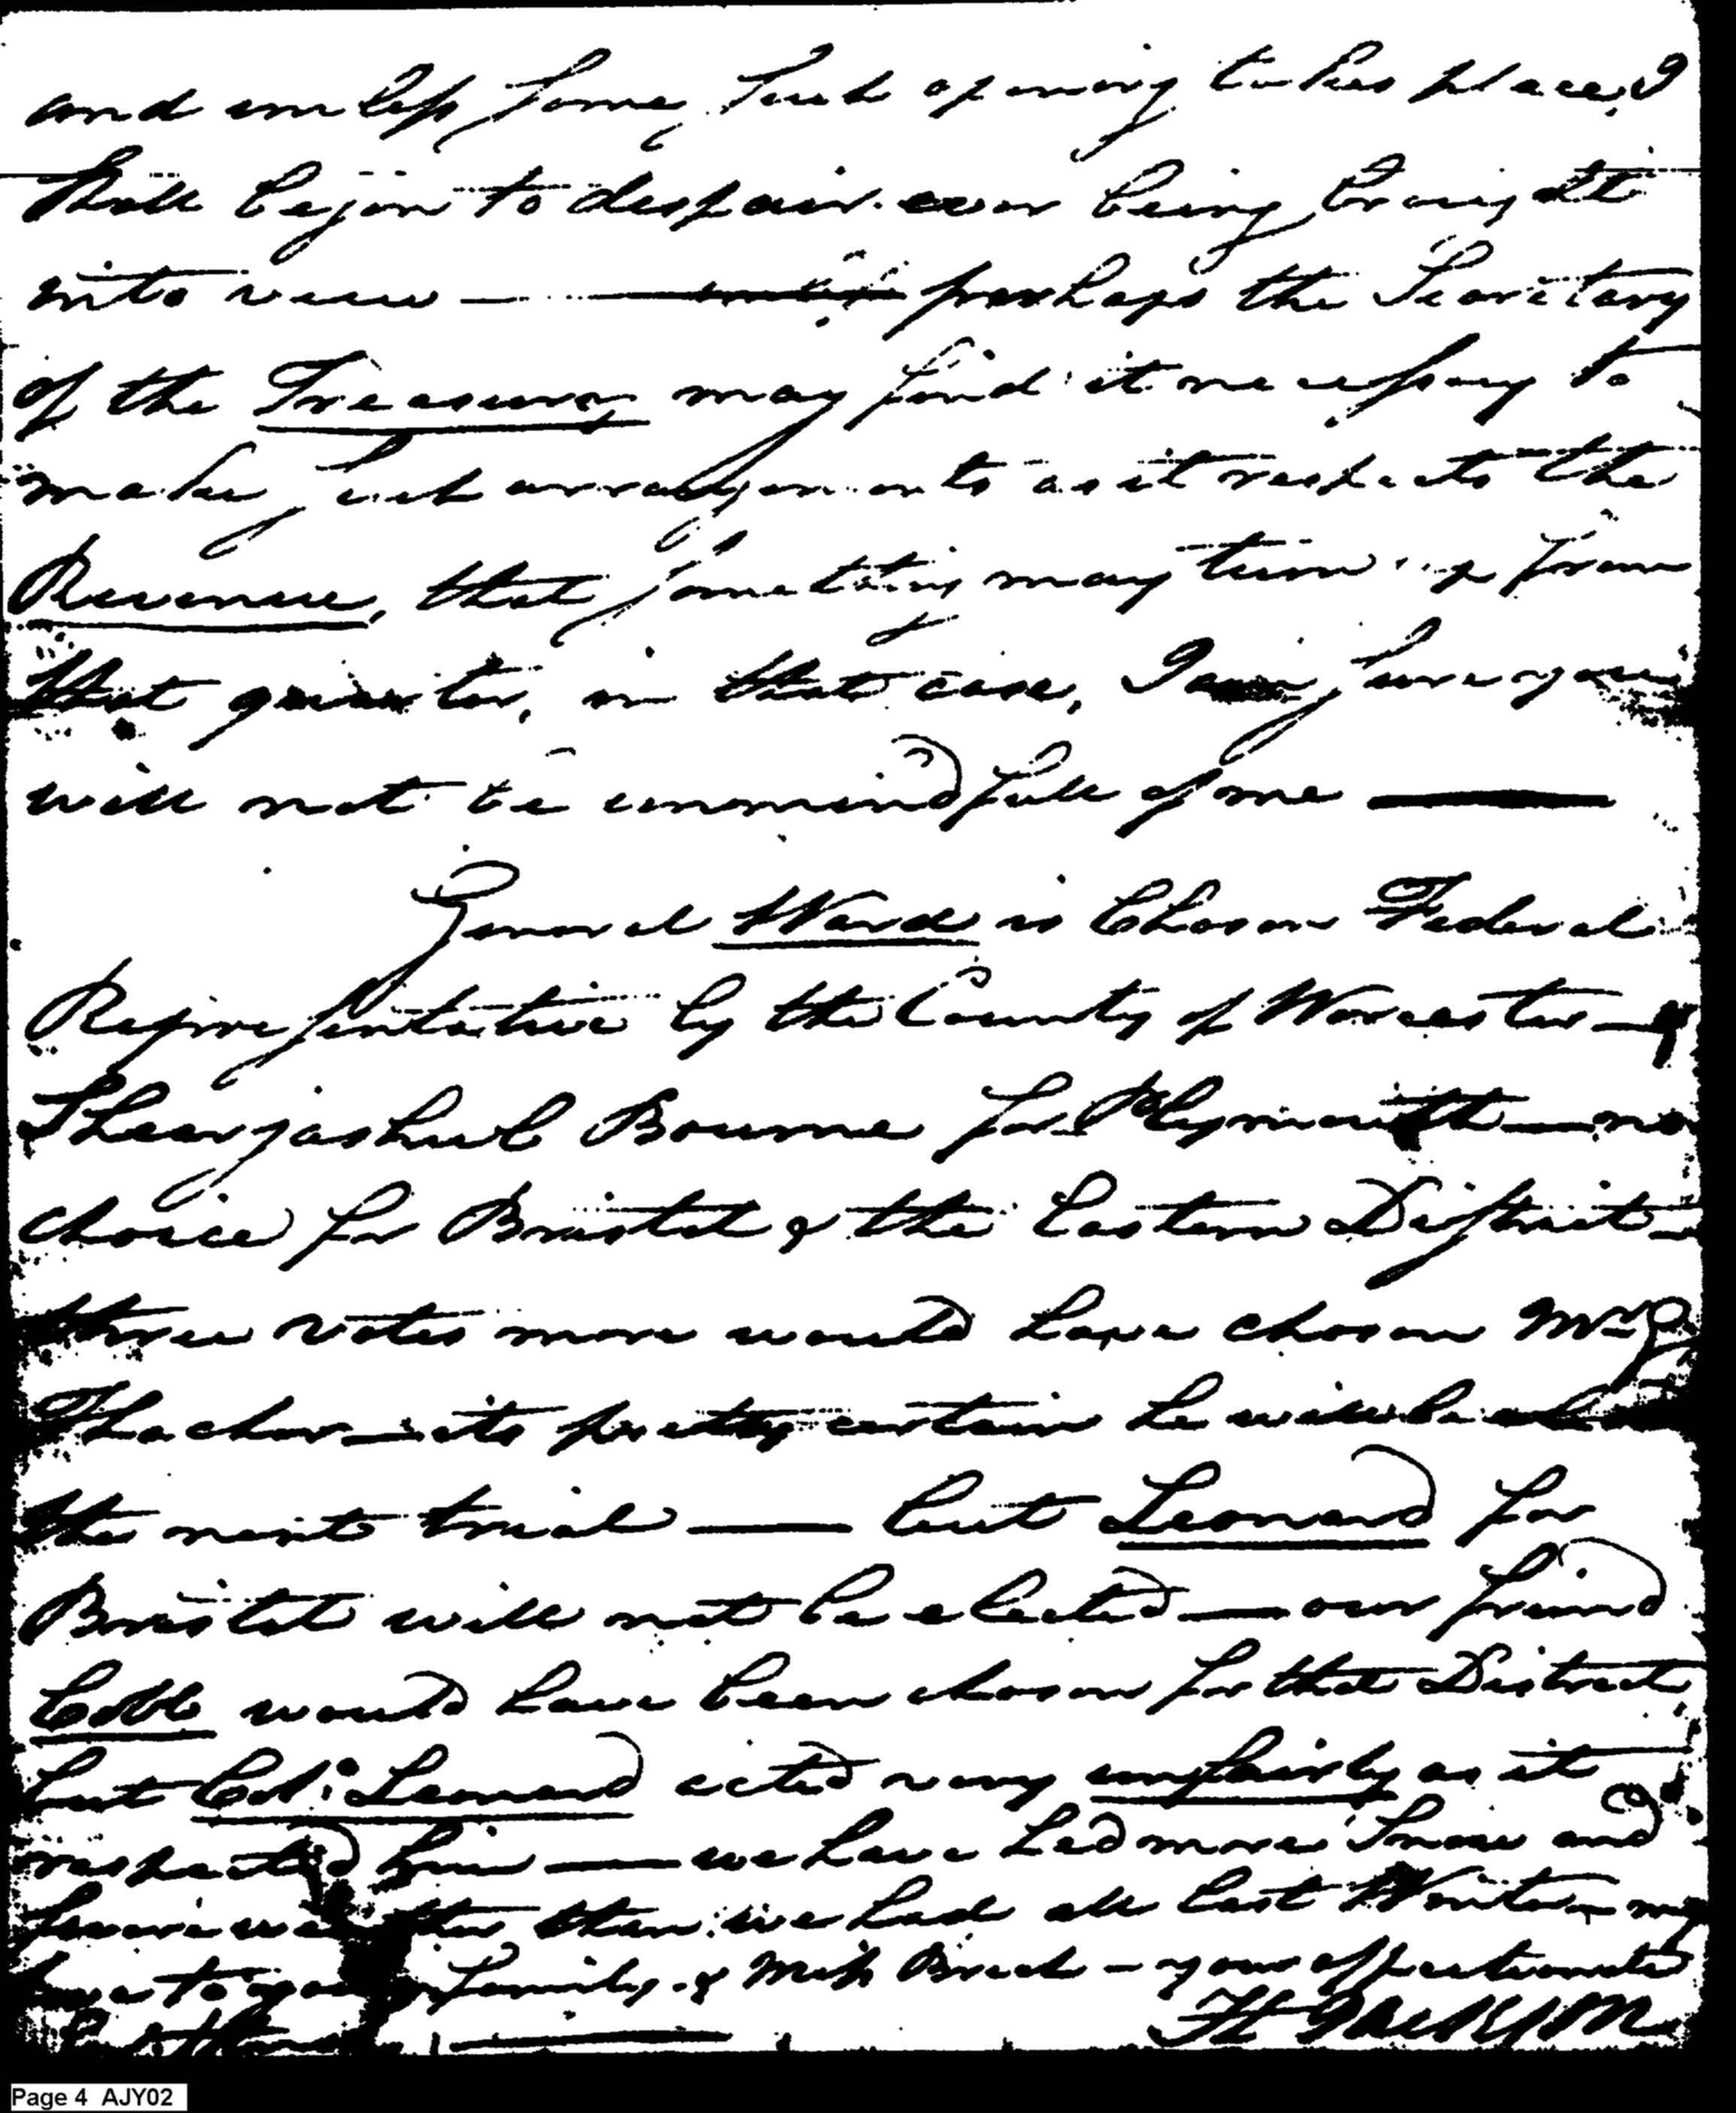 and unless some such opening takes place, I
shall begin to despair ever being brought
into view — perhaps the Secretary
of the Treasury may find it necessary to
make such arrangements as it respects the
Revenue, that something may turn up from
that quarter, in that case, I am sure you
will not be unmindfull of me —
General Ward is Chosen Federal
Representative by the County of Worcester — &
Shearjashub Bourne for Plymouth — no
choice for Bristol & the Eastern District —
three votes more would have chosen Mr. G
Thacher — its pretty certain he will be
the next trial — but Leonard for
Bristol will not be elected — our friend
Cobb would have been chosen for that District,
but Col: Leonard acted very unfairly as it
respected him — we have had more Snow and
severe weather than we had all last Winter — my
love to your family & Miss Breck — your affectionate
Brother
H Jackson
Page 4 AJY02